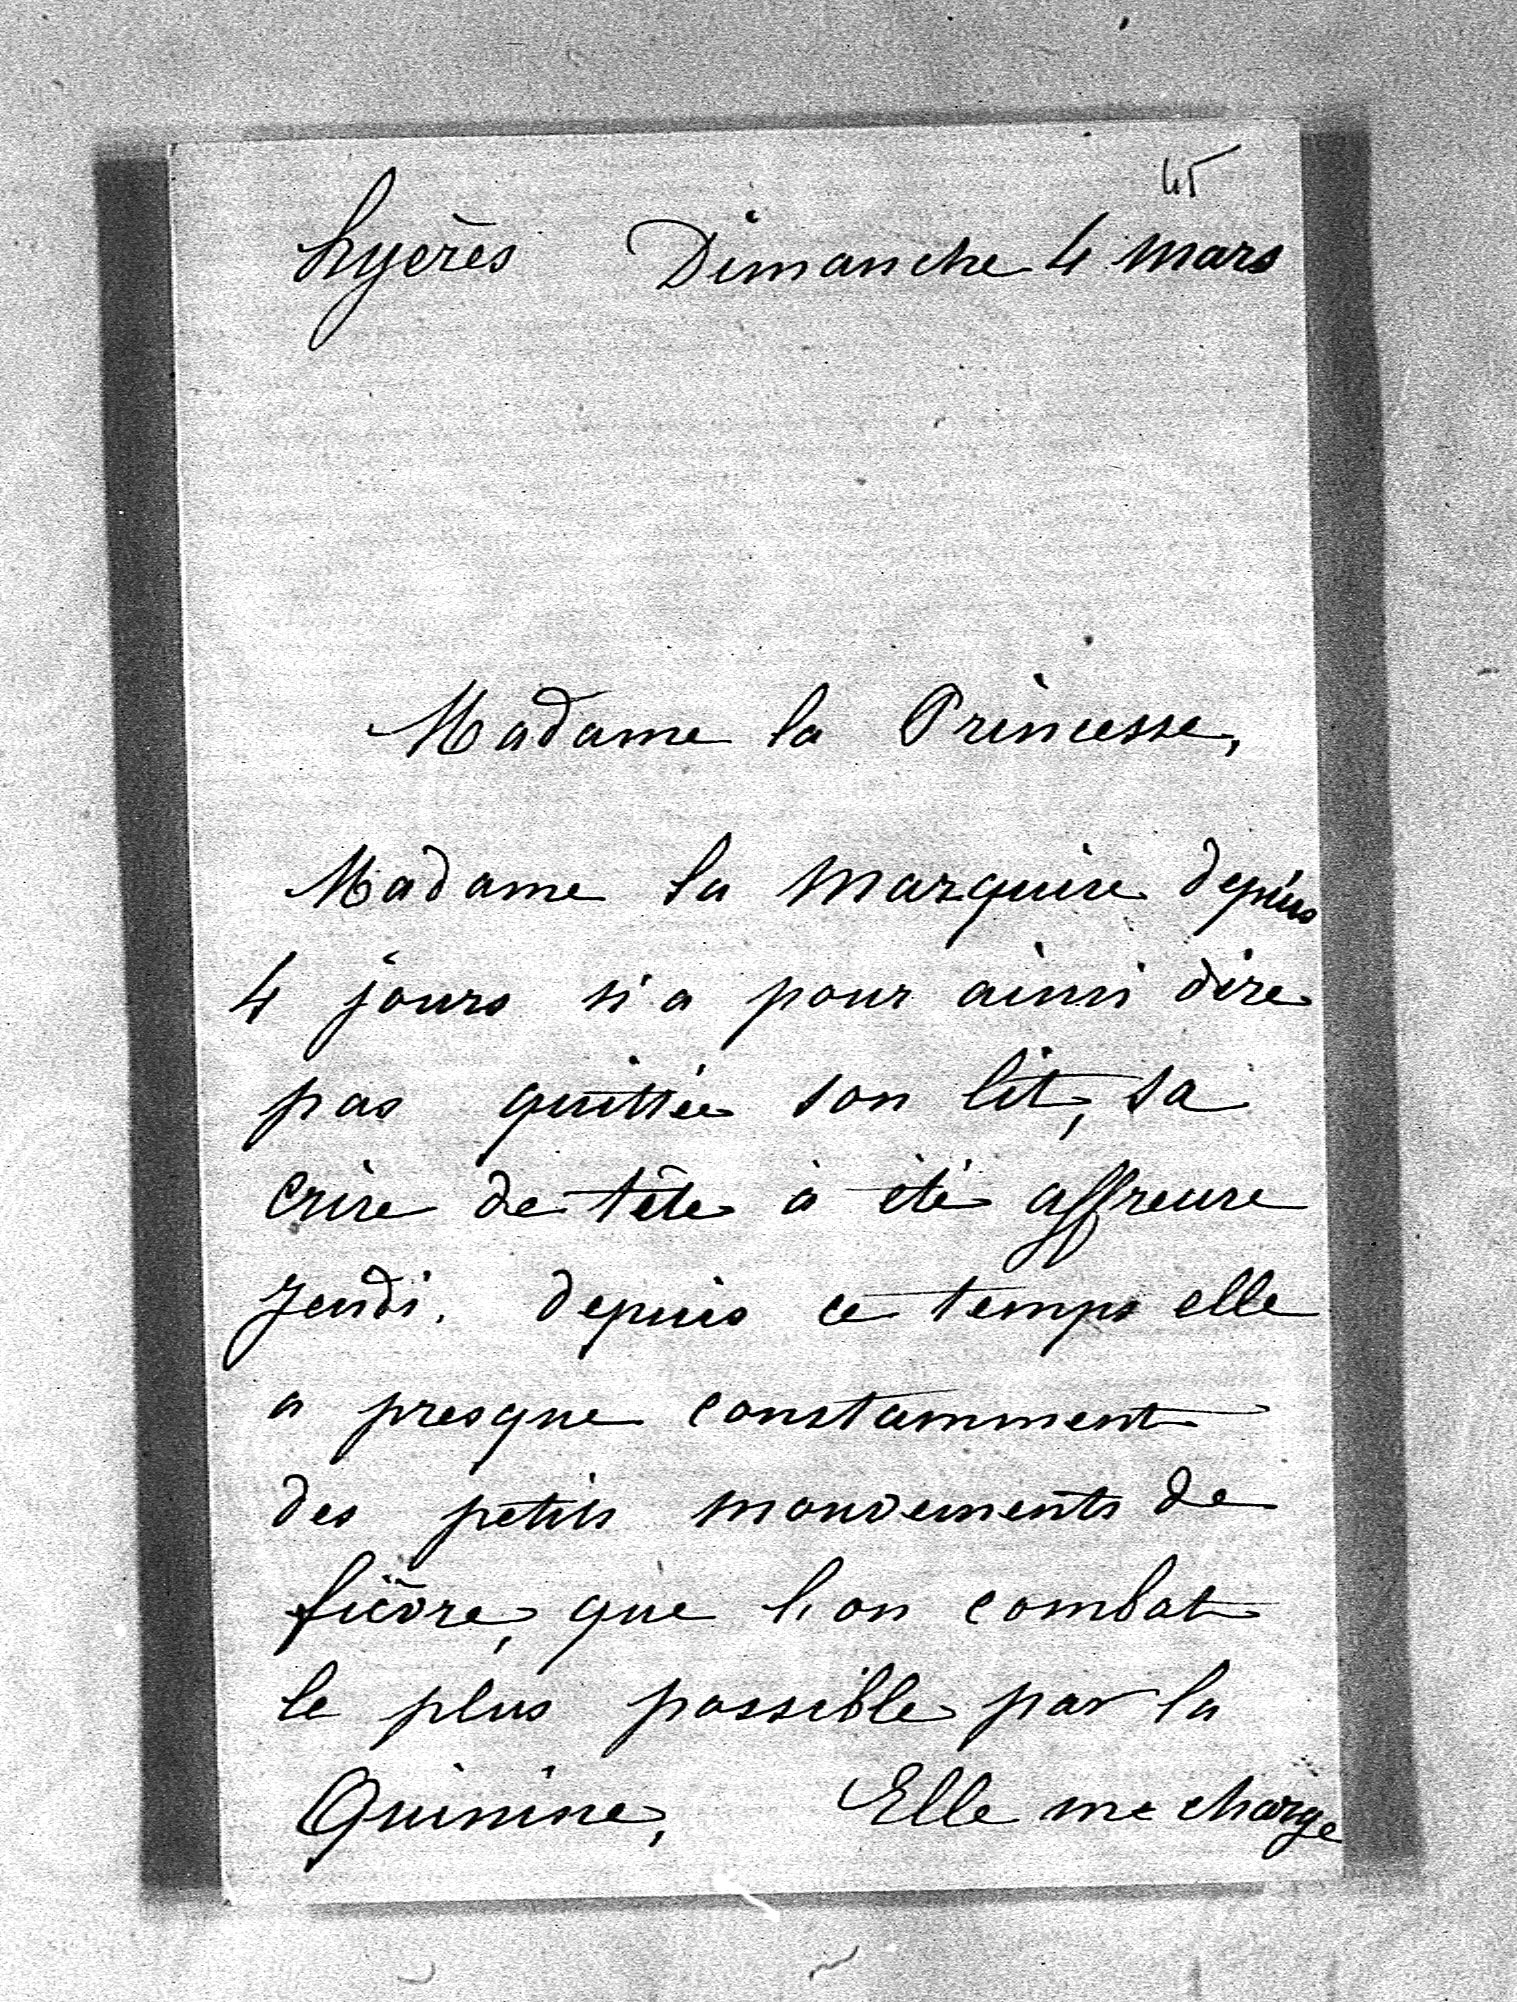 45
hyères Dimanche 4 mars
Madame la Princesse,
Madame la Marquise depuis
4 jours n'a pour ainsi dire
pas quittée son lit, sa
crise de tête à été affreuse
Jeudi. depuis ce temps elle
a presque constamment
des petits mouvements de
fièvre, que l'on combat
le plus possible par la
Quinine, Elle me charge